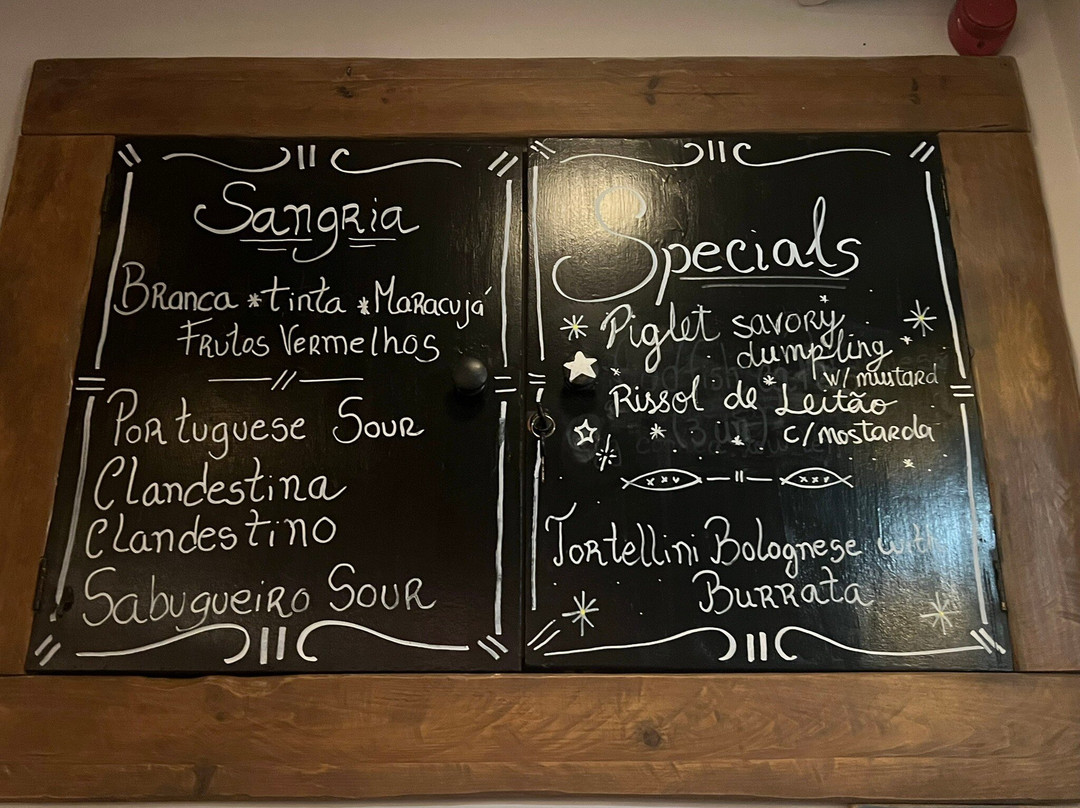 Sangria
Branca * tinta * Maracujá
Frutos Vermelhos
Portuguese Sour
Clandestina
Clandestino
Sabugueiro Sour
Specials
Piglet savory
dumpling
w/ mustard
Rissol de Leitão
c/mostarda
Tortellini Bolognese with
Burrata